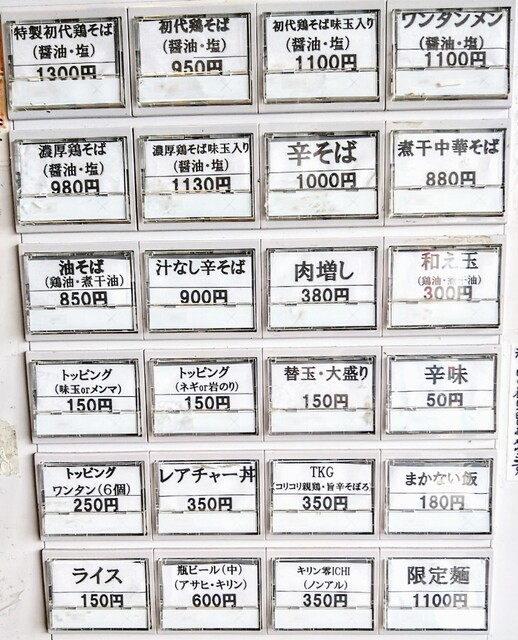 特製初代鶏そば
(醤油・塩)
1300円
初代鶏そば
(醤油・塩)
950円
初代鶏そば味玉入り
(醤油・塩)
1100円
ワンタンメン
(醤油・塩)
1100円
濃厚鶏そば
(醤油・塩)
980円
濃厚鶏そば味玉入り
(醤油・塩)
1130円
辛そば
1000円
煮干中華そば
880円
油そば
(鶏油・煮干油)
850円
汁なし辛そば
900円
肉増し
380円
和え玉
(鶏油・煮干油)
300円
トッピング
(味玉orメンマ)
150円
トッピング
(ネギor岩のり)
150円
替玉・大盛り
150円
辛味
50円
トッピング
ワンタン(6個)
250円
レアチャー丼
350円
TKG
(コリコリ親鶏・旨辛そぼろ)
350円
まかない飯
180円
ライス
150円
瓶ビール(中)
(アサヒ・キリン)
600円
キリン零ICHI
(ノンアル)
350円
限定麺
1100円